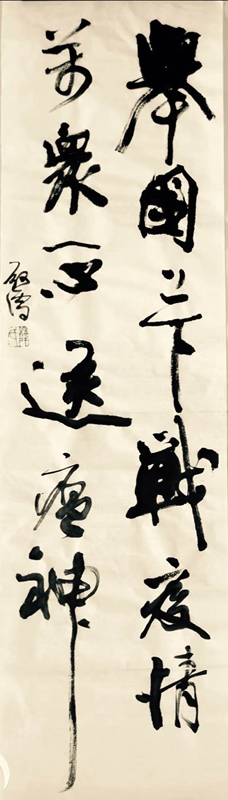 舉國上下戰疫情
萬衆一心送瘟神